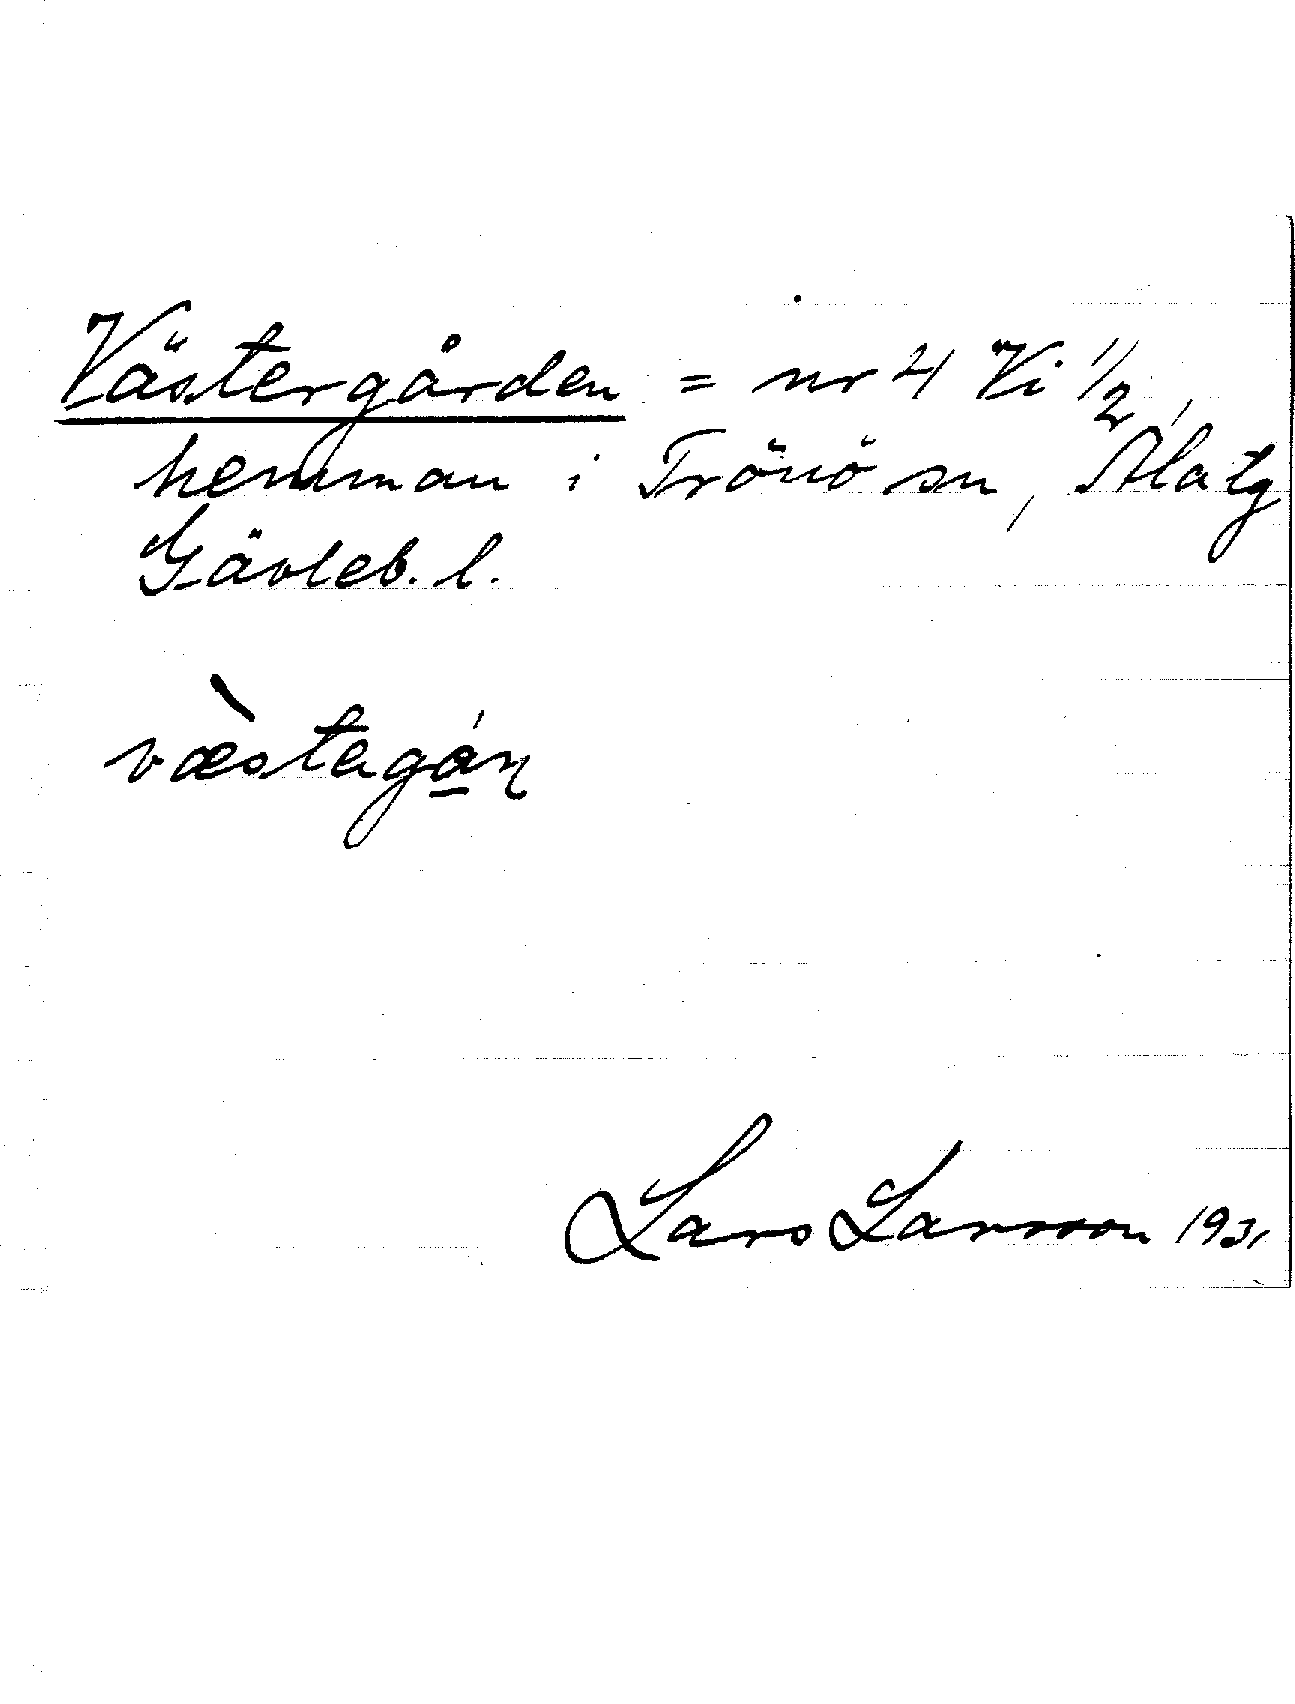 Västergården = nr 4 Vi 1/2
hemman i Trönö sn, Ala tg
Gävleb. l.
væ̀stagán
Lars Larsson 1931